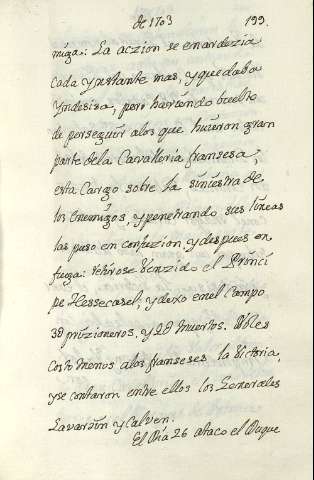 de 1703 199.
miga: La aczion se enardezia
cada ynstante mas, y quedaba
Yndesisa, pero haviendo buelto
de perseguir alos que huieron gran
parte dela Cavalleria fransesa,
esta Cargo sobre la siniestra de
los enemigos, y penetrando sus lineas
las puso en confuzion y despues en
fuga: retirose Venzido el Princi
pe Hessecasel, y dexo enel Campo
3@ prizioneros, y 2@ muertos. Noles
costo menos alos franseses la Victoria,
y se contaron entre ellos los Generales
Lavardin y Calven.
El Dia 26 ataco el Duque